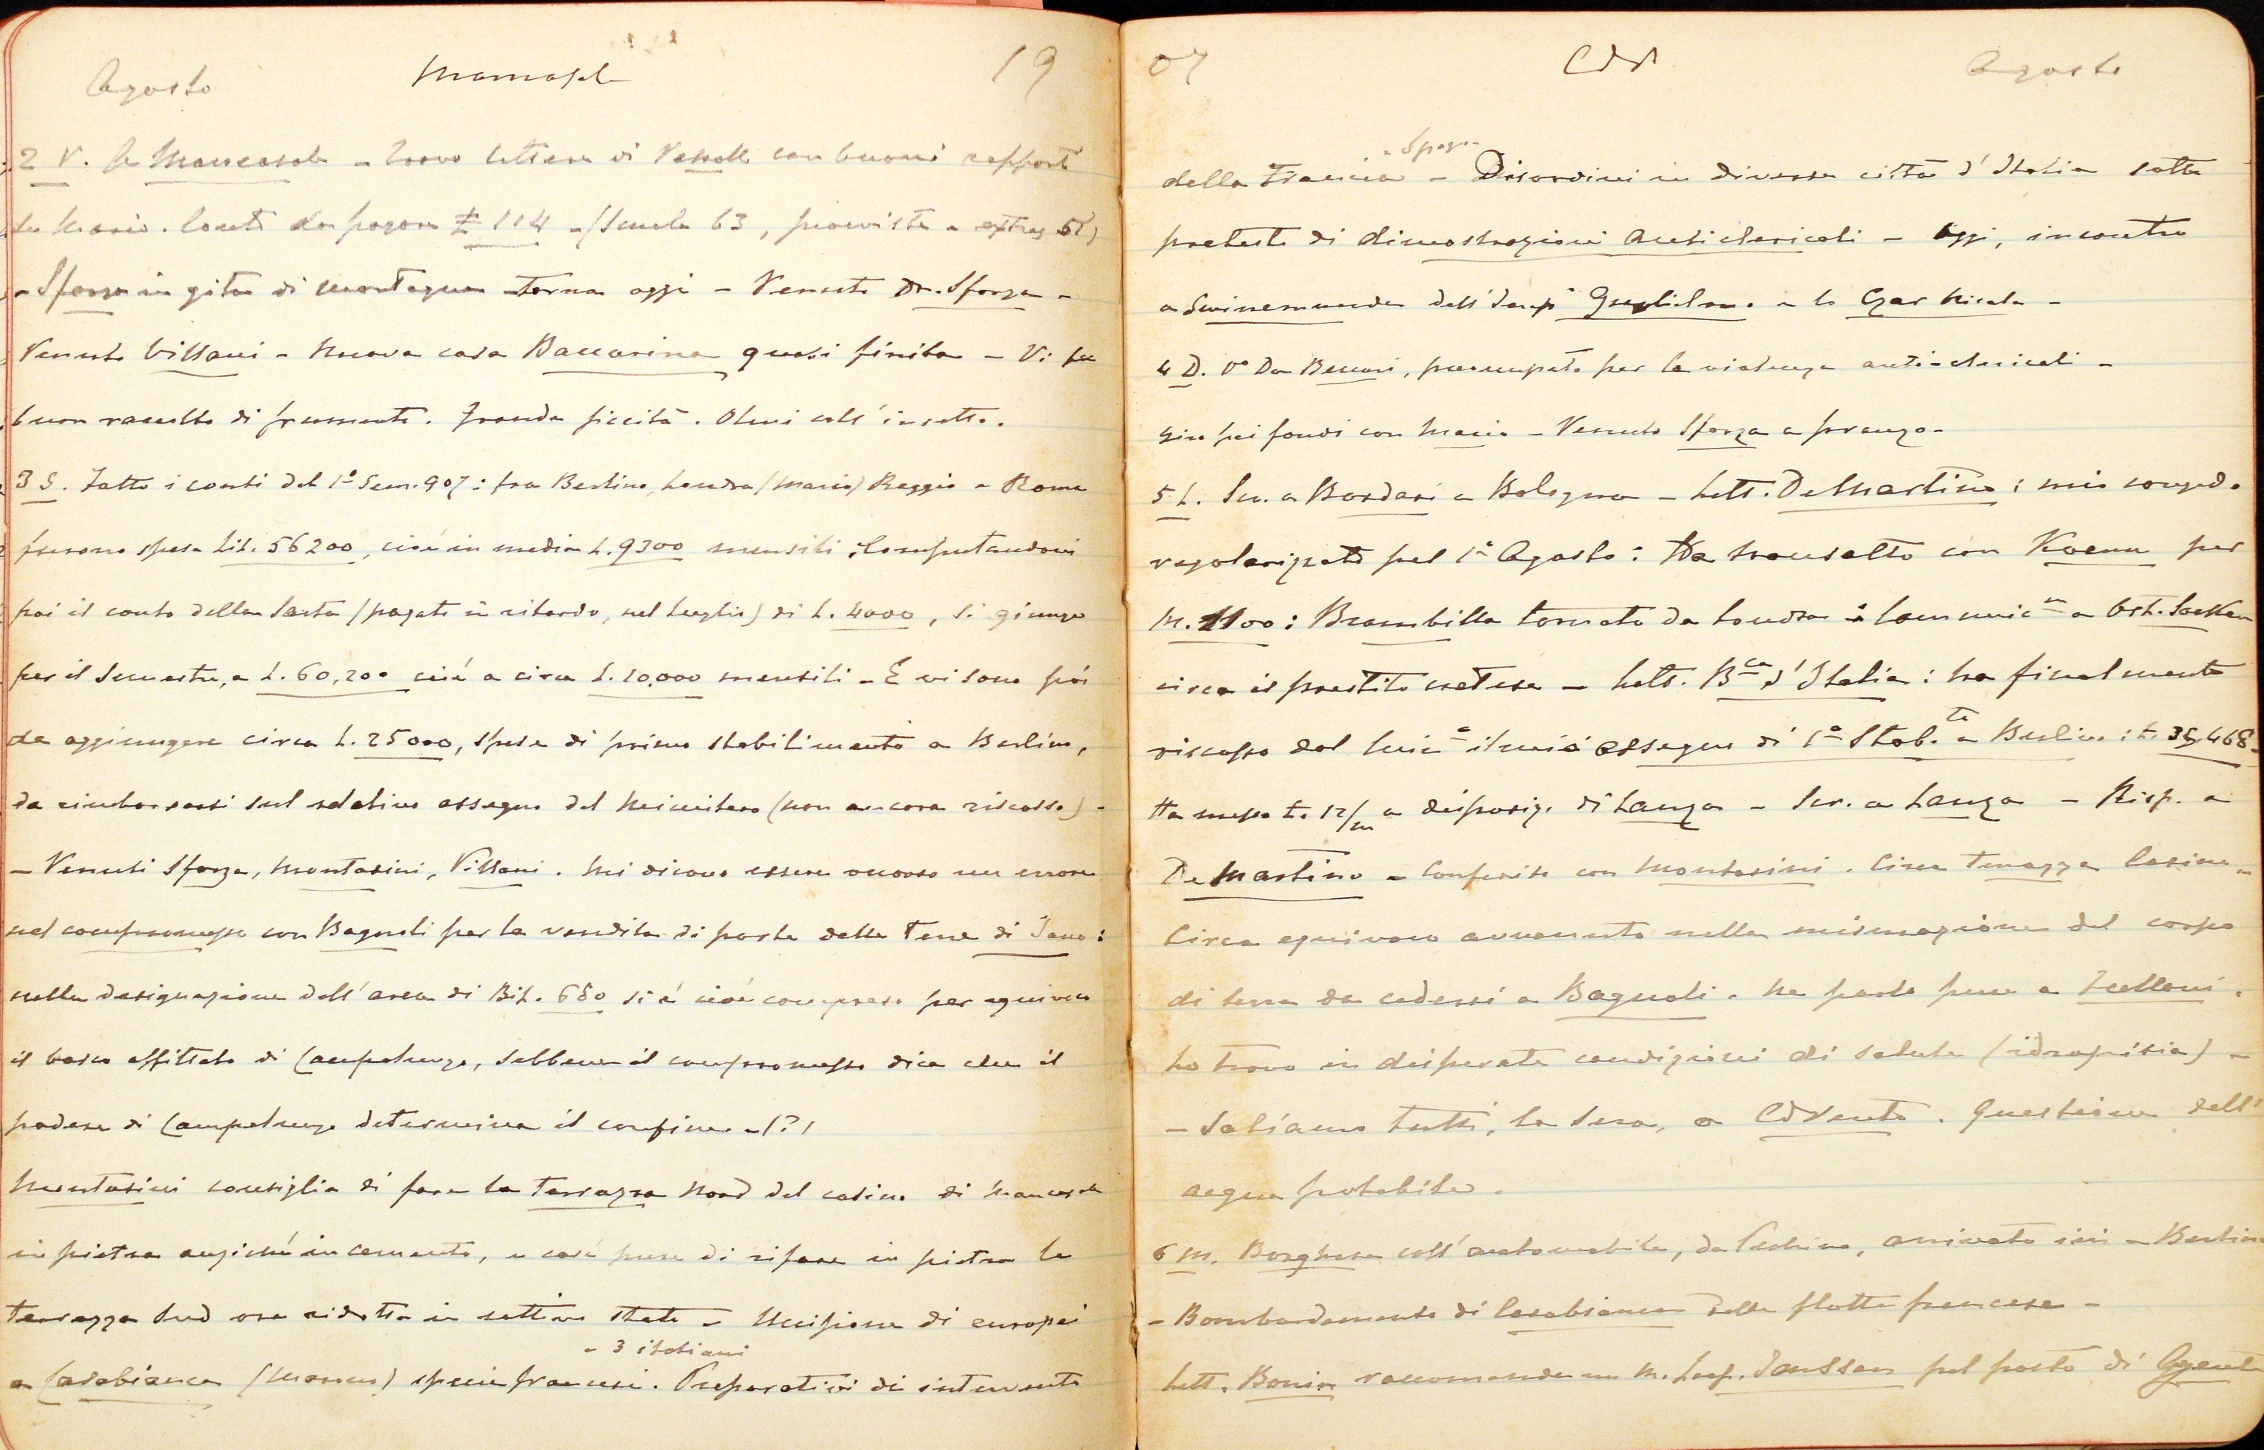 Agosto Mancasale 19
2 V. A Mancasale - Trovo lettere di Vassall con buoni rapporti
su Mario. Conti da pagare £ 114 - (Scuola 63, provviste e extras 51)
- Sforza in gita di montagna torna oggi - Venuto Dr. Sforza -
Venuto Villani - Nuova casa Baccarina quasi finita - Vi fu
buon raccolto di frumento. Grande siccità. Olmi coll'insetto.
3 S. Fatto i conti del 1º Sem. 907: fra Berlino, Londra (Mario) Reggio e Roma
furono spese Lit. 56200, cioè in media L. 9300 mensili; Computandovi
poi il conto della Sarta (pagato in ritardo, nel Luglio) di L. 4000, si giunge
per il Semestre, a L. 60,200 cioè a circa L. 10,000 mensili - E vi sono poi
da aggiungere circa L. 25000, spese di primo stabilimento a Berlino,
da rimborsarsi sul relativo assegno del Ministero (non ancora riscosso) -
- Venuti Sforza, Montasini, Villani. Mi dicono essere occorso un errore
nel compromesso con Bagnoli per la vendita di parte delle Terre di Jano:
nella designazione dell'area di Bif. 680 si è cioè compreso per equivoco
il bosco affittato di Campolungo, sebbene il compromesso dica che il
podere di Campolungo determina il confine - (?)
Montasini consiglia di fare la terrazza Nord del casino di Mancasale
in pietra anziché in cemento, e così pure di rifare in pietra la
terrazza Sud ora ridotta in cattivo stato - Uccisione di europei
e 3 italiani
a Casabianca (Marocco) specie francesi. Preparativi di intervento
07 CdV Agosto
e Spagna
della Francia - Disordini in diverse città d'Italia sotto
pretesto di dimostrazioni anticlericali - Oggi, incontro
a Swinemunde dell'Imp.e Guglielmo e lo Czar Nicola -
4 D. Vº Don Benari, preoccupato per le violenze anti-clericali -
Giro pei fondi con Mario - Venuto Sforza a pranzo -
5 L. Scr. a Bordari a Bologna - Lett. De Martino: mio congedo
regolarizzato pel 1º Agosto: Ha transatto con Koenn per
M. 1100: Brambilla tornato da Londra: Comunic.ne a Ost. Sacken
circa il prestito cretese - Lett. B.ca d'Italia: ha finalmente
riscosso dal Minº il mio assegno di 1º Stab.to a Berlino: L. 35,468 -
Ha messo L. 12/m a disposiz. di Lanza - Scr. a Lanza - Risp. a
De Martino - Conferito con Montasini. Circa terrazza Casino -
Circa equivoco avvenuto nella misurazione del corpo
di terra da cedersi a Bagnoli. Ne parlo pure a Scelloni.
Lo trovo in disperate condizioni di salute (idropisia) -
- Saliamo tutti, la sera, a CdVento. Questione dell'
acqua potabile.
6 M. Borghese coll'automobile, da Pechino, arrivato ieri a Berlino
- Bombardamento di Casabianca della flotta francese -
Lett. Bonin raccomanda un M. Leop. Janssen pel posto di Agente